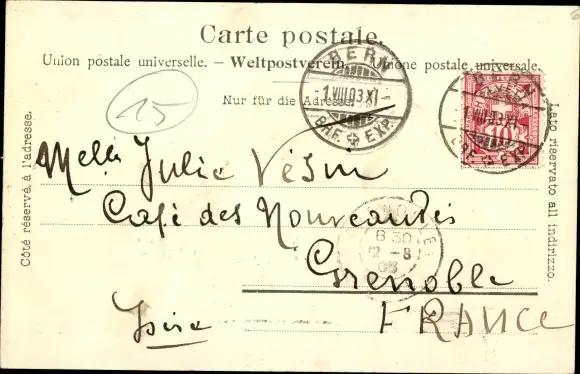 Carte postale.
Union postale universelle. — Weltpostverein. — Unione postale universale.
Nur für die Adresse.
BERN
-1.VIII.03.XI-
BHF. EXP.
BERN
-1.VIII.03.XI-
BHF. EXP.
15
Côté réservé à l'adresse.
Lato riservato all indirizzo.
Melle Julie Vésin
Café des Nouveautés
Grenoble
8 30
2 -8
03
Isère
FRANCE